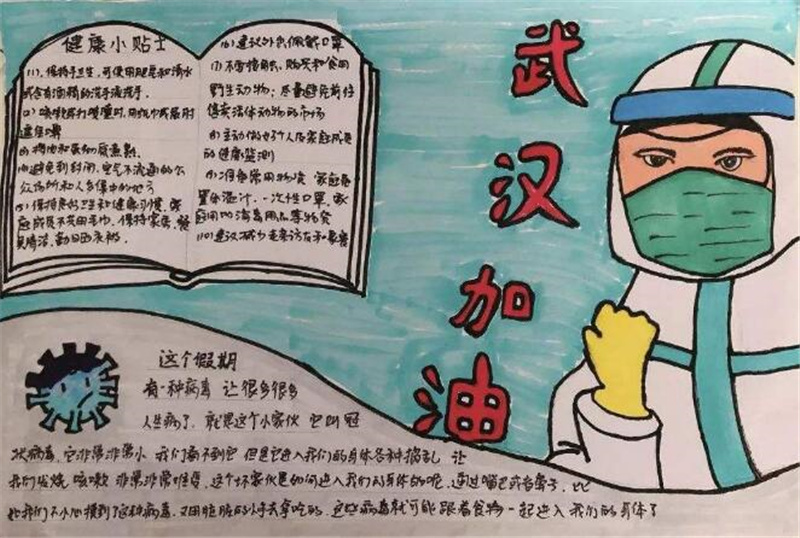 健康小贴士
(1)、保持手卫生,可使用肥皂和清水
或含有酒精的洗手液洗手.
(2)咳嗽或打喷嚏时,用纸巾或屈肘
遮住口鼻
(3)将肉和蛋彻底煮熟.
(4)避免到封闭,空气不流通的公
众场所和人多集中的地方
(5)保持良好卫生和健康习惯,家
庭成员不共用毛巾,保持家居,餐
具清洁,勤晒衣被.
(6)建议外出佩戴口罩
(7)不要接触、购买和食用
野生动物;尽量避免前往
售卖活体动物的市场
(8)主动做好个人及家庭成员
的健康监测
(9)准备常用物资 家庭备
置体温计,一次性口罩,家
庭用的消毒用品等物资
(10)建议减少走亲访友和聚餐
武
汉
加
油
这个假期
有一种病毒 让很多很多
人生病了,就是这个小家伙 它叫冠
状病毒,它非常非常小 我们看不到它 但是它进入我们的身体各种捣乱 让
我们发烧 咳嗽 非常非常难受,这个坏家伙是如何进入我们的身体的呢,通过嘴巴或者鼻子,比
如我们不小心摸到了这种病毒,又用脏脏的小手去拿吃的,这些病毒就可能跟着食物一起进入我们的身体了